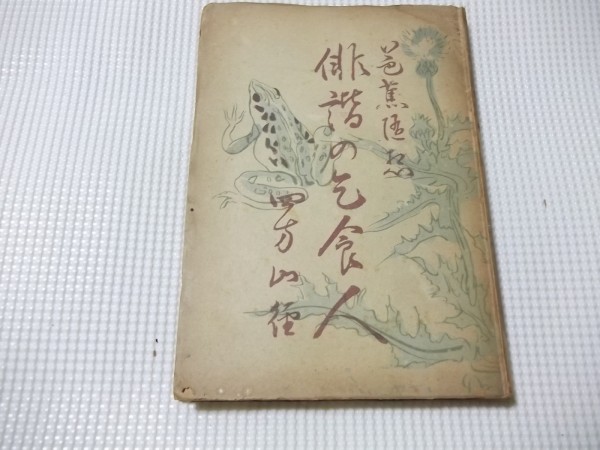 芭蕉随想
俳諧の乞食人
四方山径